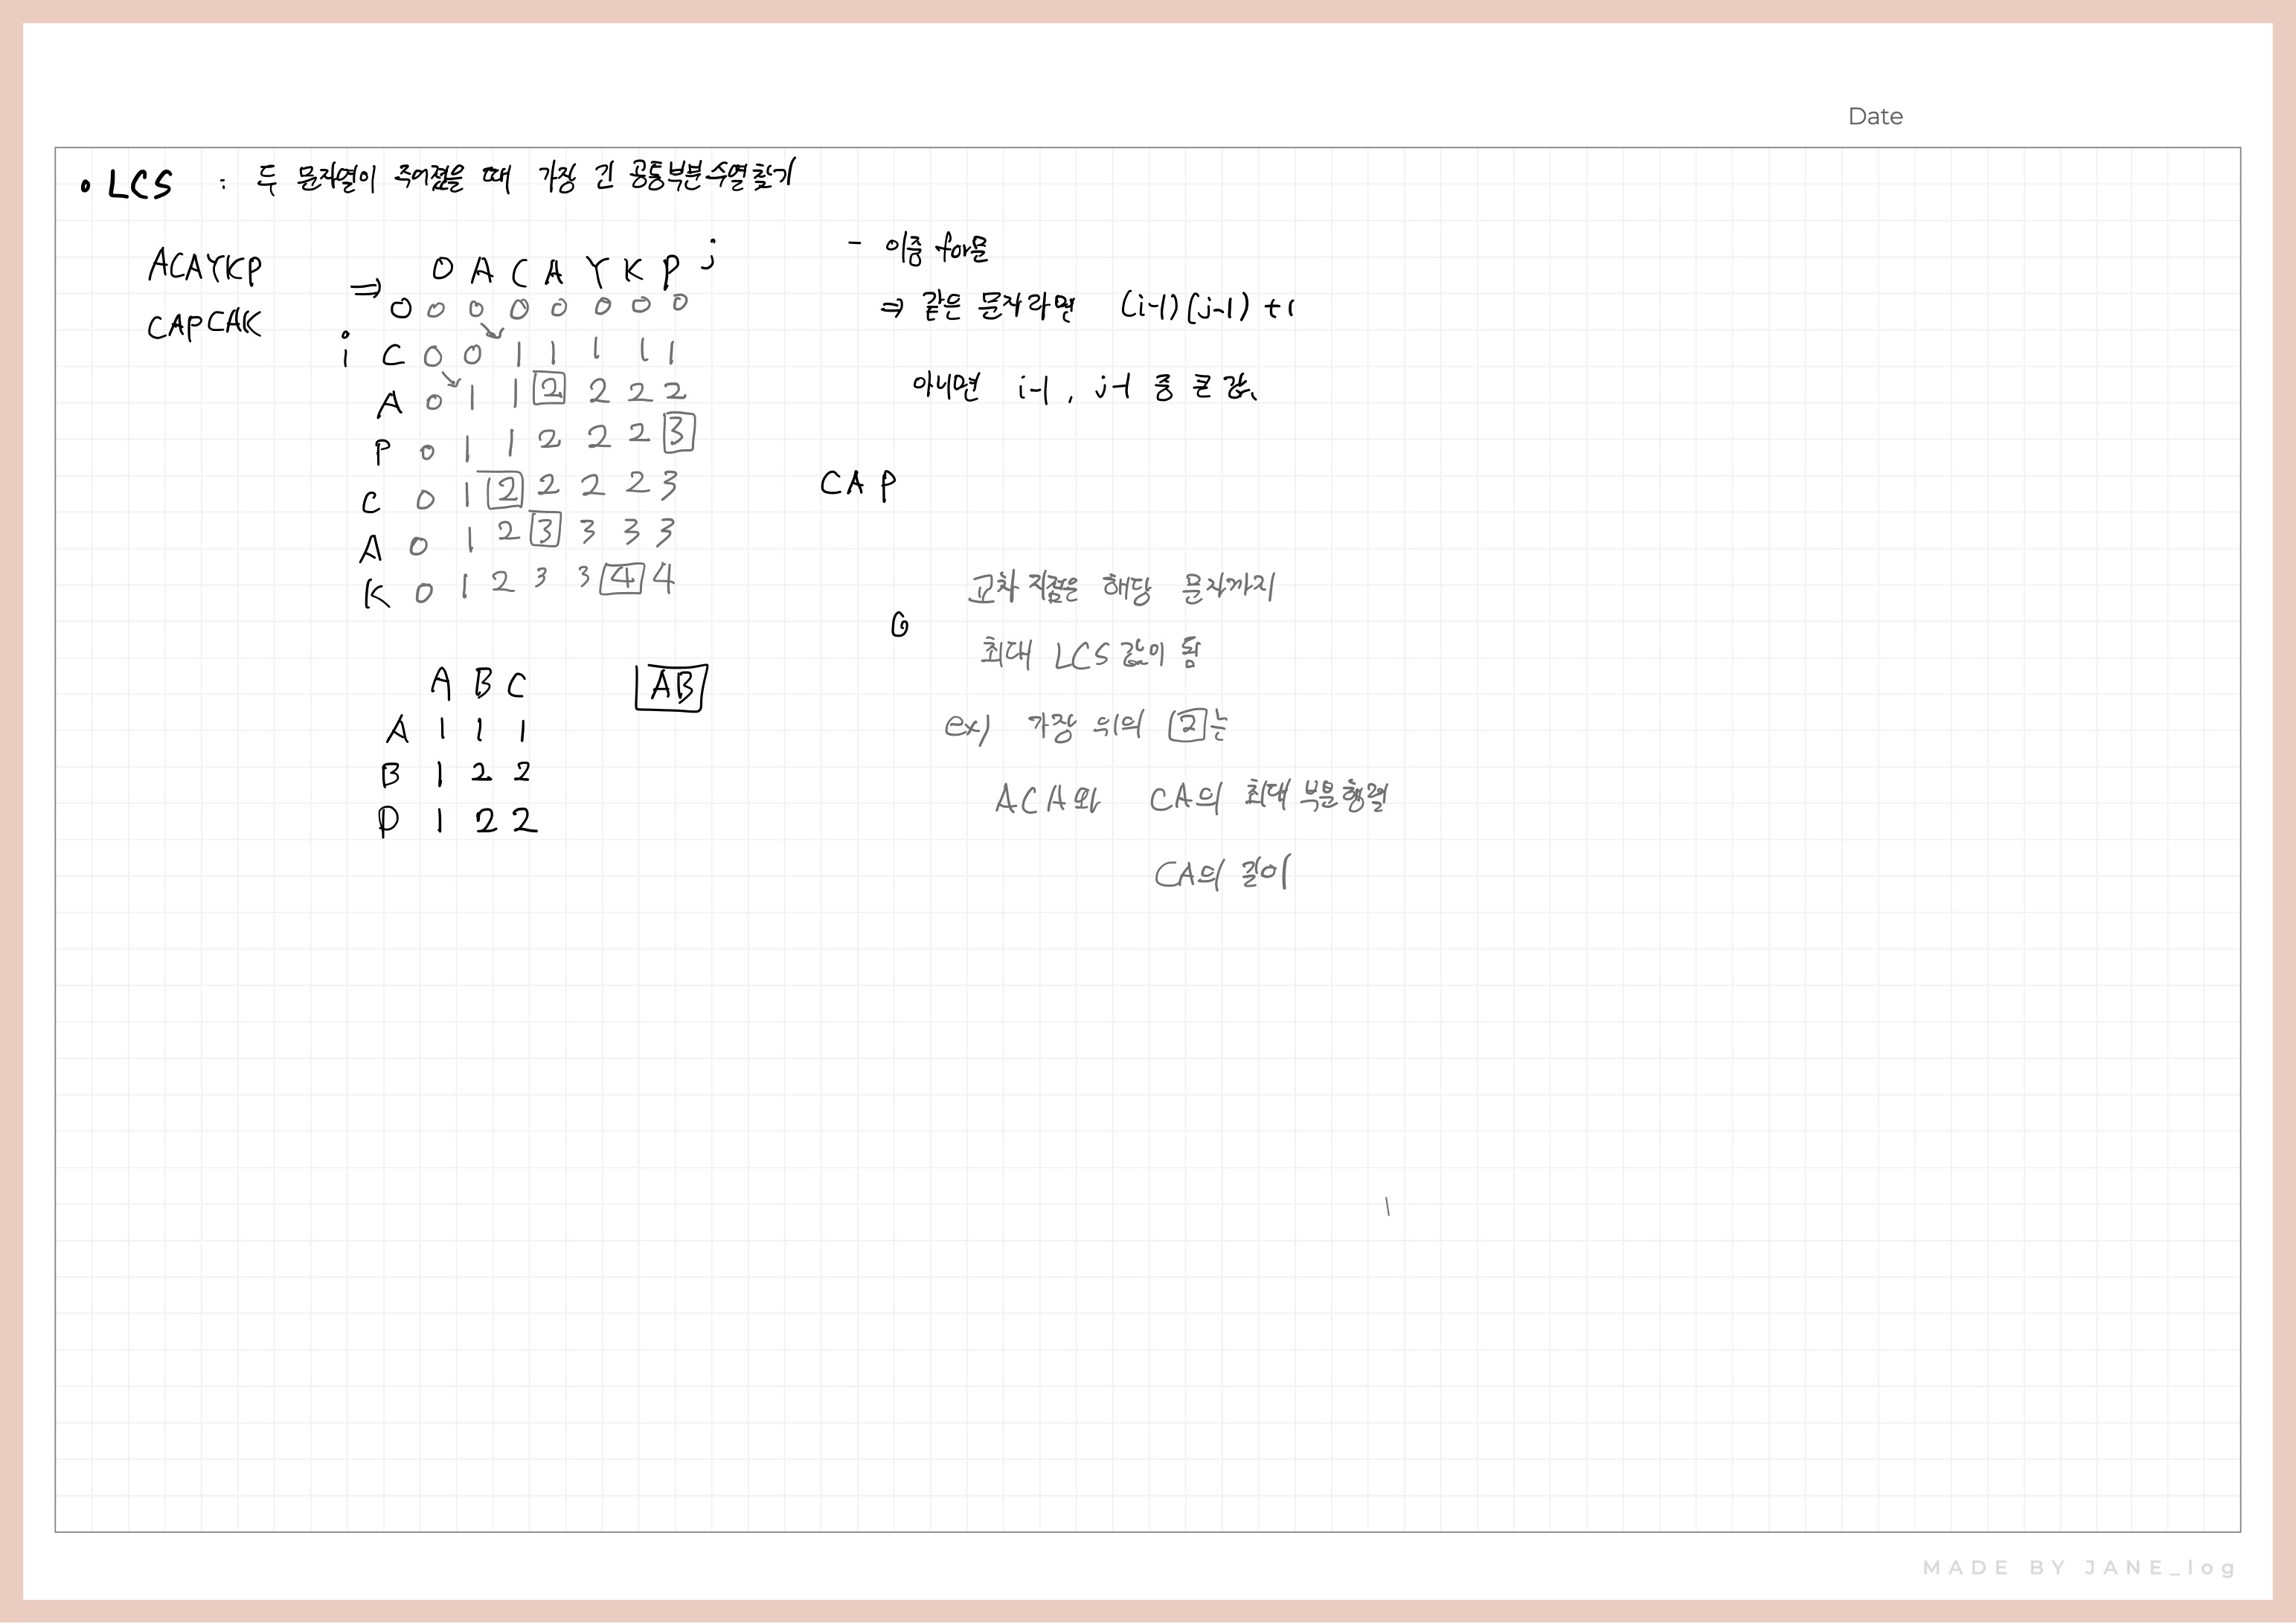 Date
• LCS : 두 문자열이 주어졌을 때 가장 긴 공통부분수열찾기
ACAYKP
CAPCAK
⇒ 0 A C A Y K P j
0 0 0 0 0 0 0 0
i C 0 0 1 1 1 1 1
A 0 1 1 2 2 2 2
P 0 1 1 2 2 2 3
C 0 1 2 2 2 2 3
A 0 1 2 3 3 3 3
K 0 1 2 3 3 4 4
A B C
A 1 1 1
B 1 2 2
D 1 2 2
AB
- 이중 for문
⇒ 같은 문자라면 (i-1)(j-1) +1
아니면 i-1, j-1 중 큰 값.
CAP
교차 지점은 해당 문자까지
최대 LCS 값이 됨
ex) 가장 위의 2는
ACA와 CA의 최대 부분행렬
CA의 길이
MADE BY JANE_log